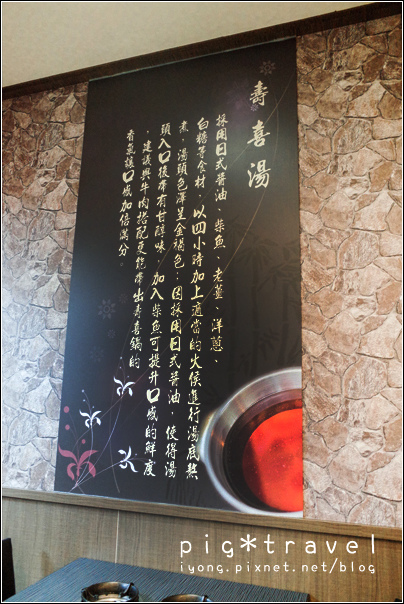 壽喜湯
採用日式醬油、柴魚、老薑、洋蔥、
白糖等食材，以四小時加上適當的火侯進行湯底熬
煮，湯頭色澤呈金褐色；因採用日式醬油，使得湯
頭入口後帶有甘醇味，加入柴魚可提升口感的鮮度
，建議與牛肉搭配更能帶出壽喜鍋的
香氣讓口感加倍滿分。
pig*travel
iyong.pixnet.net/blog